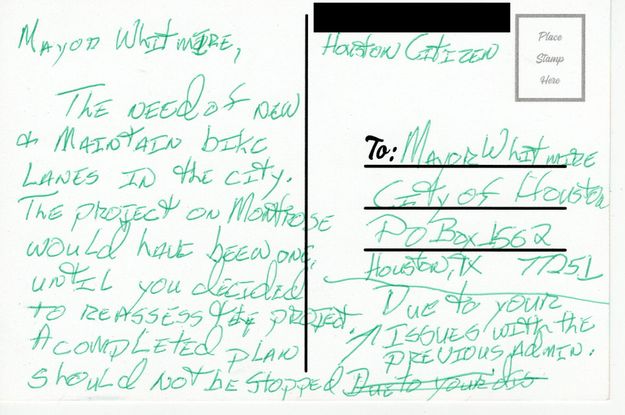 Mayor Whitmire,
The need of new
& Maintain bike
Lanes in the city.
The project on Montrose
would have been one,
until you decided
to reassess the project.
A completed plan
should not be stopped Due to your dis
Houston Citizen
Place
Stamp
Here
To: Mayor Whitmire
City of Houston
PO Box 1562
Houston, TX 77251
Due to your
issues with the
previous admin.